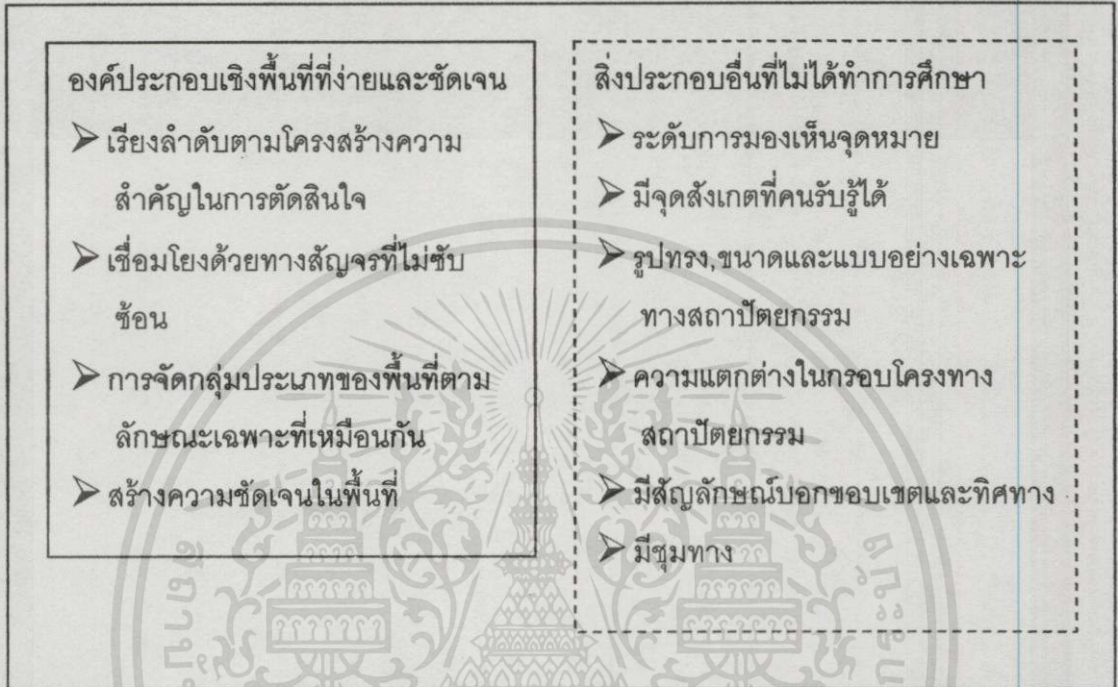 องค์ประกอบเชิงพื้นที่ที่ง่ายและชัดเจน
➤ เรียงลำดับตามโครงสร้างความ
สำคัญในการตัดสินใจ
➤ เชื่อมโยงด้วยทางสัญจรที่ไม่ซับ
ซ้อน
➤ การจัดกลุ่มประเภทของพื้นที่ตาม
ลักษณะเฉพาะที่เหมือนกัน
➤ สร้างความชัดเจนในพื้นที่
สิ่งประกอบอื่นที่ไม่ได้ทำการศึกษา
➤ ระดับการมองเห็นจุดหมาย
➤ มีจุดสังเกตที่คนรับรู้ได้
➤ รูปทรง,ขนาดและแบบอย่างเฉพาะ
ทางสถาปัตยกรรม
➤ ความแตกต่างในกรอบโครงทาง
สถาปัตยกรรม
➤ มีสัญลักษณ์บอกขอบเขตและทิศทาง
➤ มีชุมทาง